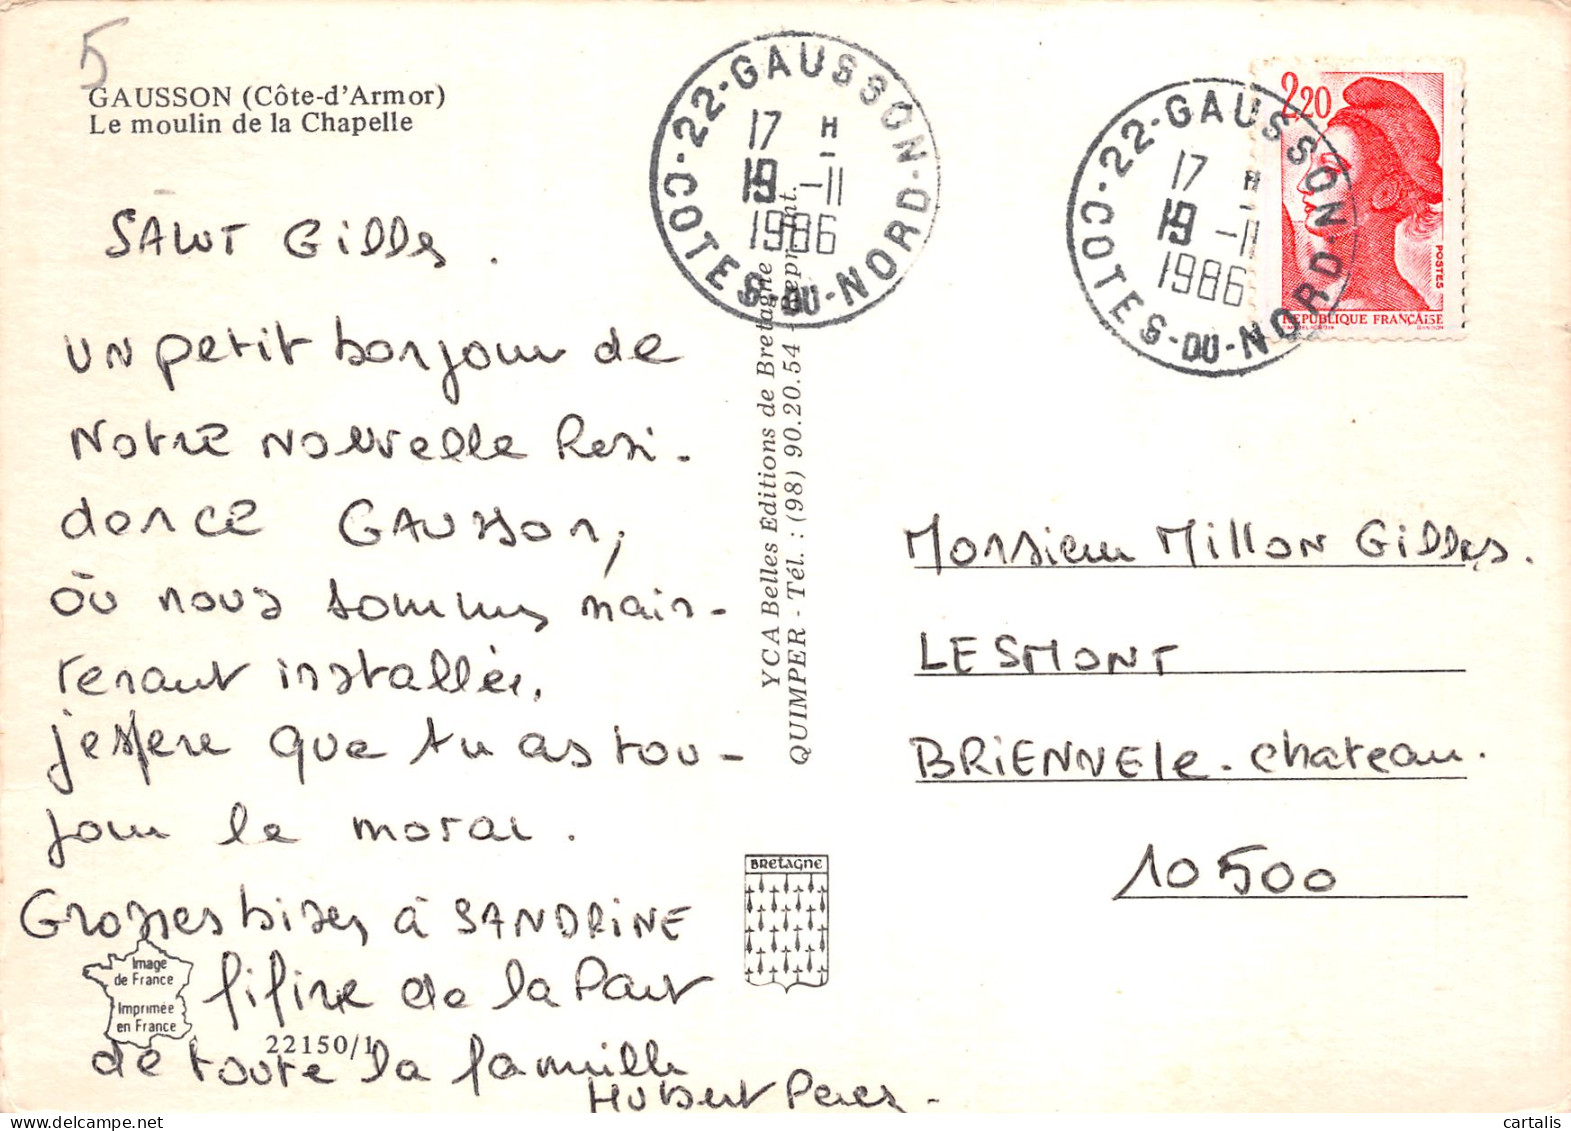 5
GAUSSON (Côte-d'Armor)
Le moulin de la Chapelle
SALUT Gilles.
UN petit bonjour de
Notre Nouvelle Resi-
dence GAUSSON,
où nous sommes main-
tenant installés.
j'espere que tu as tou-
jours le moral.
Grosses bises à SANDRINE
fifine de la Part
de toute la famille
Hubert Peres.
Image
de France
Imprimée
en France
22150/1
YCA Belles Editions de Bretagne
QUIMPER - Tél. : (98) 90.20.54
BRETAGNE
22-GAUSSON
17 H
19 -11
1986
COTES-DU-NORD
22-GAUSSON
17 H
19 -11
1986
COTES-DU-NORD
2,20
POSTES
REPUBLIQUE FRANÇAISE
GANDON
Monsieur Millon Gilles.
LESMONT
BRIENNE le - Chateau.
10500
www.delcampe.net
Your Image of Your Item
cartalis